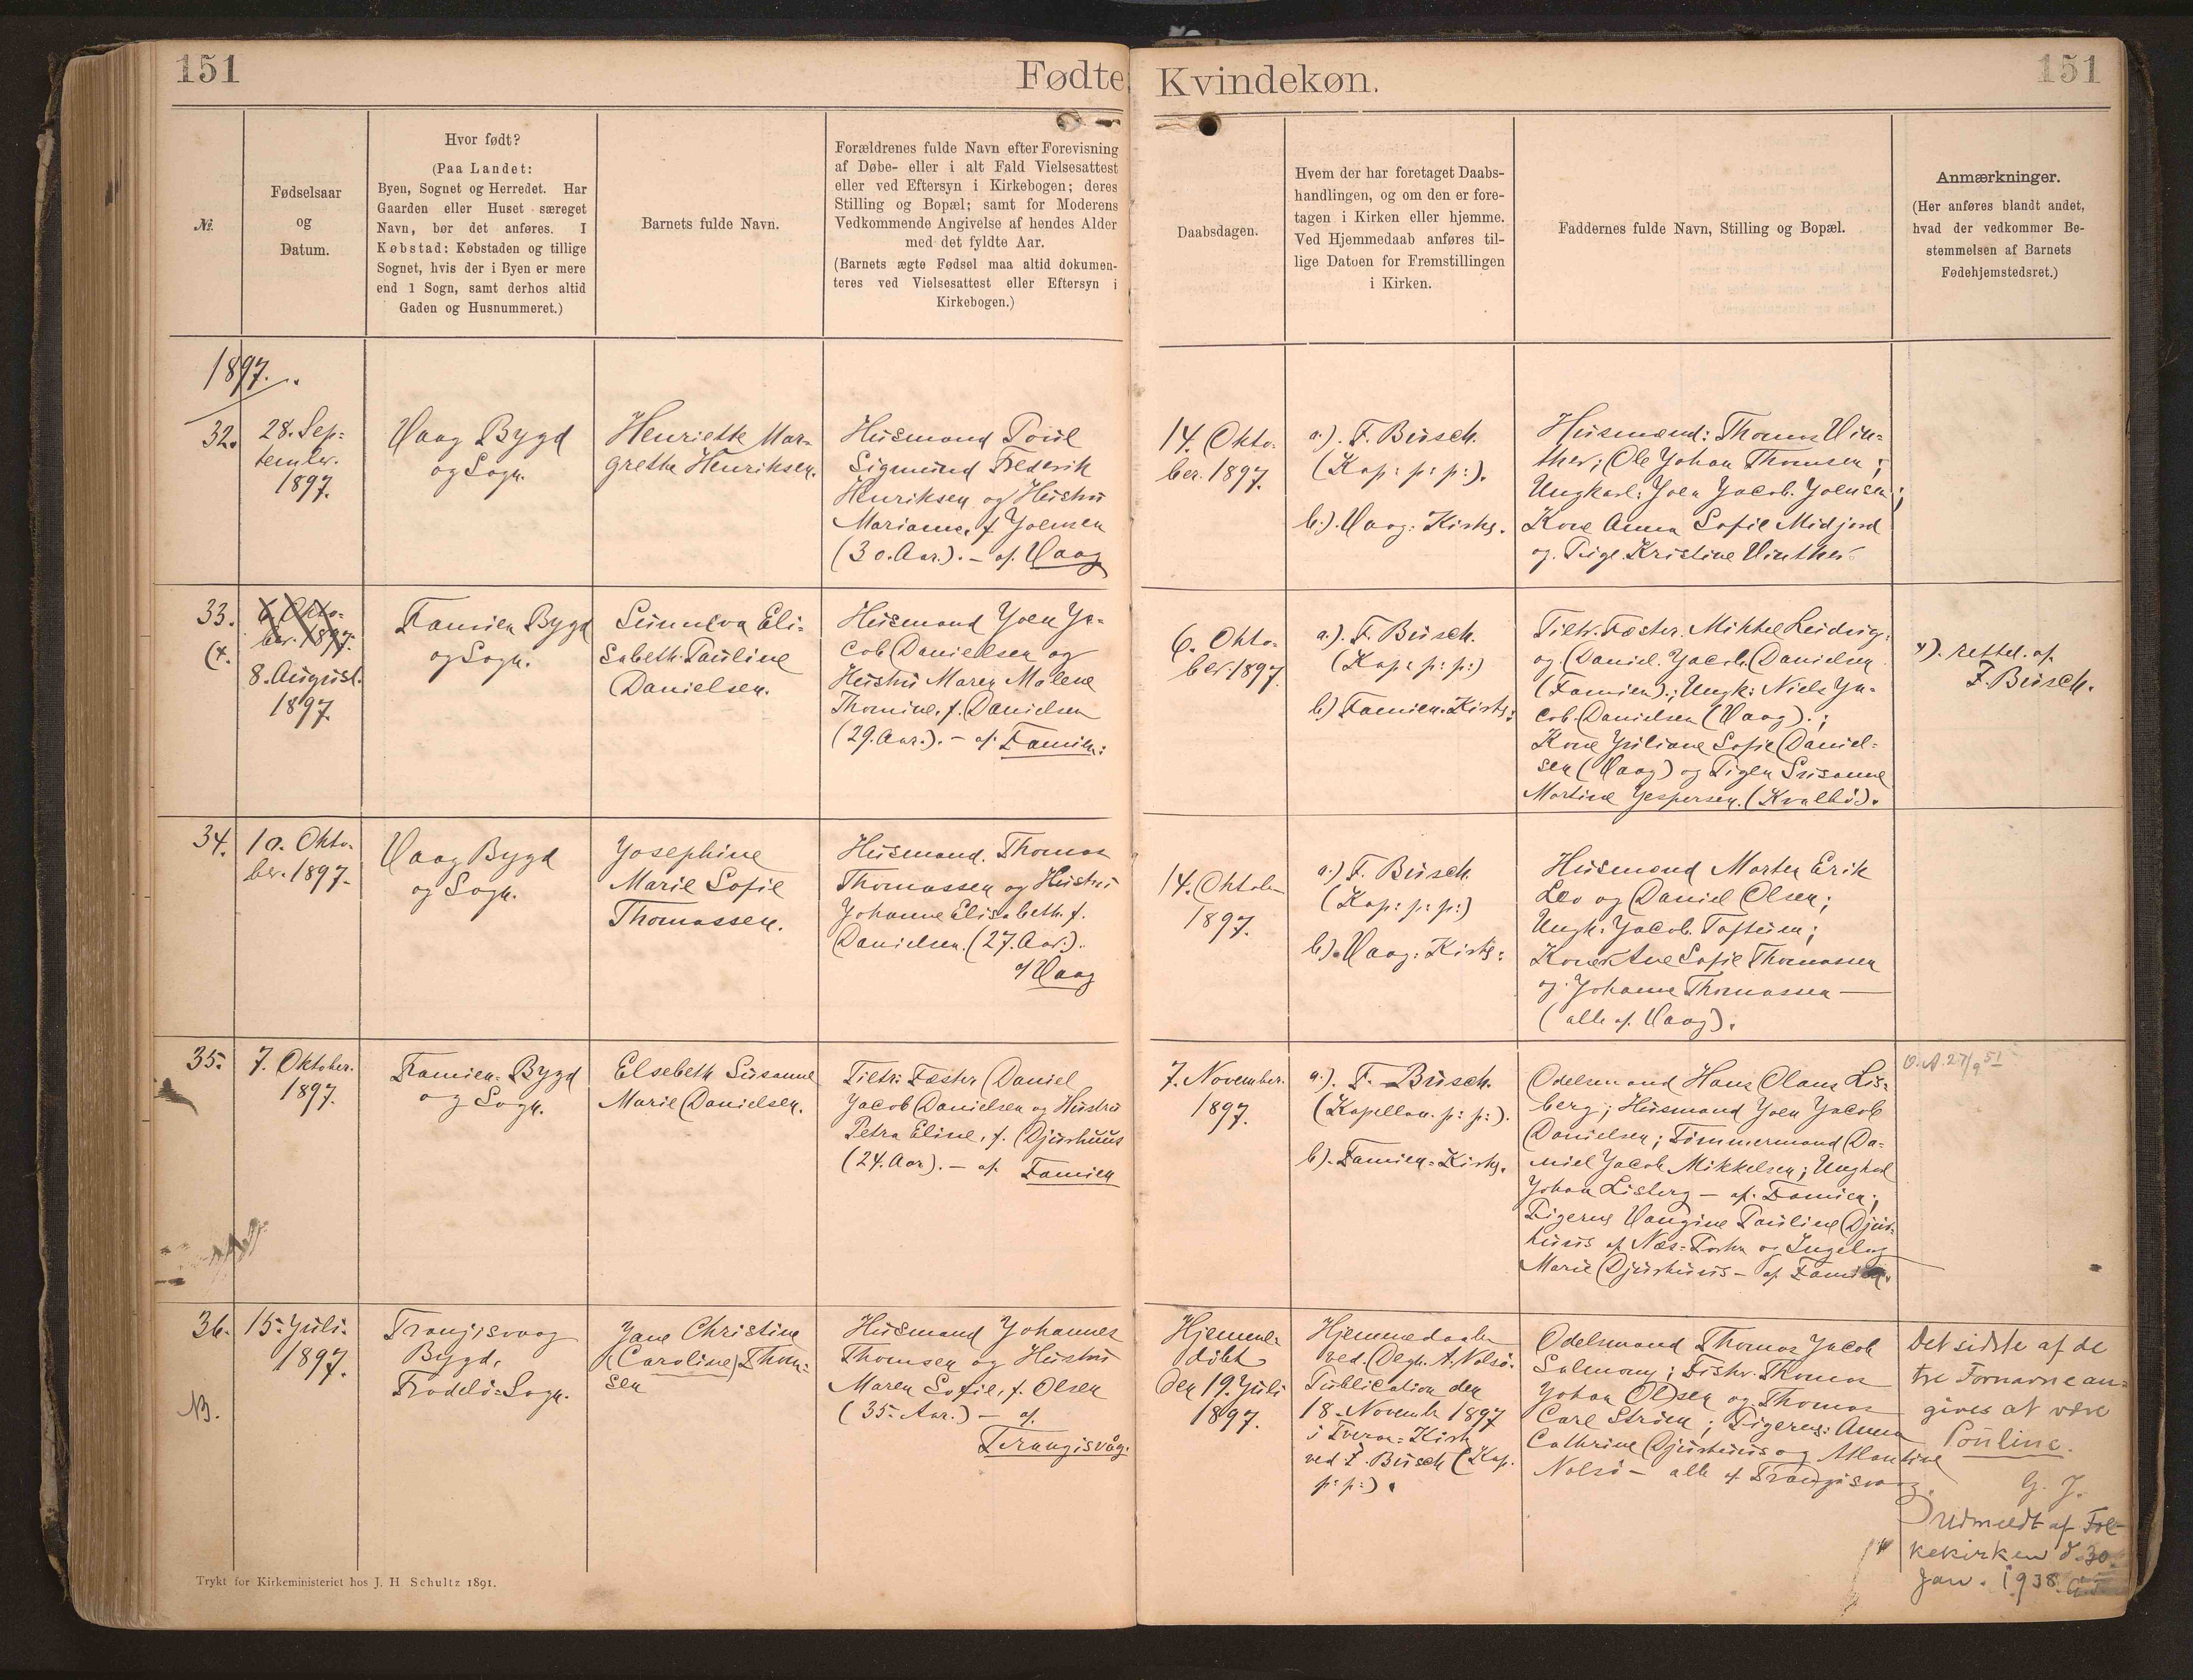 151
Fødte
Kvindekøn.
151
№.
Fødselsaar
og
Datum.
Hvor født?
(Paa Landet:
Byen, Sognet og Herredet. Har
Gaarden eller Huset særeget
Navn, bør det anføres. I
Købstad: Købstaden og tillige
Sognet, hvis der i Byen er mere
end 1 Sogn, samt derhos altid
Gaden og Husnummeret.)
Barnets fulde Navn.
Forældrenes fulde Navn efter Forevisning
af Døbe- eller i alt Fald Vielsesattest
eller ved Eftersyn i Kirkebogen; deres
Stilling og Bopæl; samt for Moderens
Vedkommende Angivelse af hendes Alder
med det fyldte Aar.
(Barnets ægte Fødsel maa altid dokumen-
teres ved Vielsesattest eller Eftersyn i
Kirkebogen.)
Daabsdagen.
Hvem der har foretaget Daabs-
handlingen, og om den er fore-
tagen i Kirken eller hjemme.
Ved Hjemmedaab anføres til-
lige Datoen for Fremstillingen
i Kirken.
Faddernes fulde Navn, Stilling og Bopæl.
Anmærkninger.
(Her anføres blandt andet,
hvad der vedkommer Be-
stemmelsen af Barnets
Fødehjemstedsret.)
1897.
32.
28. Sep=
tember.
1897.
Vaag Bygd
og Sogn.
Henriette Mar-
grethe Henriksen.
Husmand Poul
Sigmund Frederik
Henriksen og Hustru
Marianne, f Joensen
(30. Aar.). – af. Vaag
14. Okto-
ber. 1897.
a.). F. Busch.
(Kap: p: p:).
b.). Vaag: Kirke.
Husmænd: Thomas Win=
ther; Ole Johan Thomsen;
Ungkarl: Joen Jacob. Joensen;
Kone Anna Sofie Midjord
og. Pige. Kristine Winther
33.
(x.
6. Okto-
ber. 1897.
8. August.
1897.
Famien Bygd
og Sogn.
Sunneva Eli-
sabeth. Pauline
Danielsen.
Husmand Joen Ja-
cob Danielsen og
Hustru Maren Malene
Thomine, f. Danielsen
(29. Aar.). – af. Famien:
6. Okto-
ber. 1897.
a.). F. Busch.
(Kap: p: p:)
b) Famien. Kirke:
Tieltr. Fæster. Mikkel Ludvig.
og. Daniel. Jacob. Danielsen
(Famien).; Ungk: Niels Ja-
cob. Danielsen (Vaag).;
Kone Juliane Sofie Daniel=
sen (Vaag) og Pigen Susanne
Martine Jespersen. (Kvalbø).
x). rettet. af.
F. Busch.
34.
10. Okto-
ber. 1897.
Vaag Bygd
og Sogn.
Josephine
Marie Sofie
Thomassen.
Husmand. Thomas
Thomassen og Hustru
Johanne Elisabeth. f.
Danielsen. (27. Aar.).
af Vaag
14. Oktober
1897.
a.) F. Busch.
(Kap: p: p:)
b). Vaag: Kirke:
Husmænd Morten Erik
Leo og Daniel Olsen;
Ungk. Jacob. Toftum;
Kone Ane Sofie Thomassen
og. Johanne Thomassen —
(alle af. Vaag).
35.
7. Oktober.
1897.
Famien= Bygd
og Sogn.
Elsebeth Susanne
Marie Danielsen.
Tieltr. Fæster Daniel
Jacob Danielsen og Hustru
Petra Eline, f. Djurhuus
(24. Aar). – af. Famien
7. November.
1897.
a.). F. Busch.
(Kapellan. p: p:).
b). Famien= Kirke.
Odelsmand Hans Olaus Lis=
berg; Husmand Joen Jacob
Danielsen; Tømmermand Da=
niel Jacob Mikkelsen; Ungkarl
Johan Lisberg – af. Famien;
Pigerne Vaugine Pauline Djur-
huus af Næs= Porkere og Ingeborg
Marie Djurhuus – af. Famien.
O. A. 27/9 51
36.
15. Juli.
1897.
N.
Trangisvaag
Bygd,
Frodebø= Sogn.
Jane Christine
(Caroline) Thom=
sen
Husmand Johannes
Thomsen og Hustru
Maren Sofie, f. Olsen
(35. Aar.) – af.
Trangisvåg.
Hjemme-
døbt
den 19. Juli
1897.
Hjemmedaaben
ved. Degn. A. Nolsø.
Publication den
18. Novembr 1897
i Tveraa= Kirk
ved F. Busch (Kap.
p: p:).
Odelsmand Thomas Jacob
Salmony; Fiskr. Thomas
Johan Olsen og Thomas
Carl Strøm; Pigerne: Anna
Cathrine Djurhuus og Atlantine
Nolsø – alle af. Trangisvaag.
Det sidste af de
tre Fornavne an=
gives at være
Pouline.
G. J.
Udmeldt af Fol-
kekirken d. 30.
Jan. 1938.
Trykt for Kirkeministeriet hos J. H. Schultz 1891.